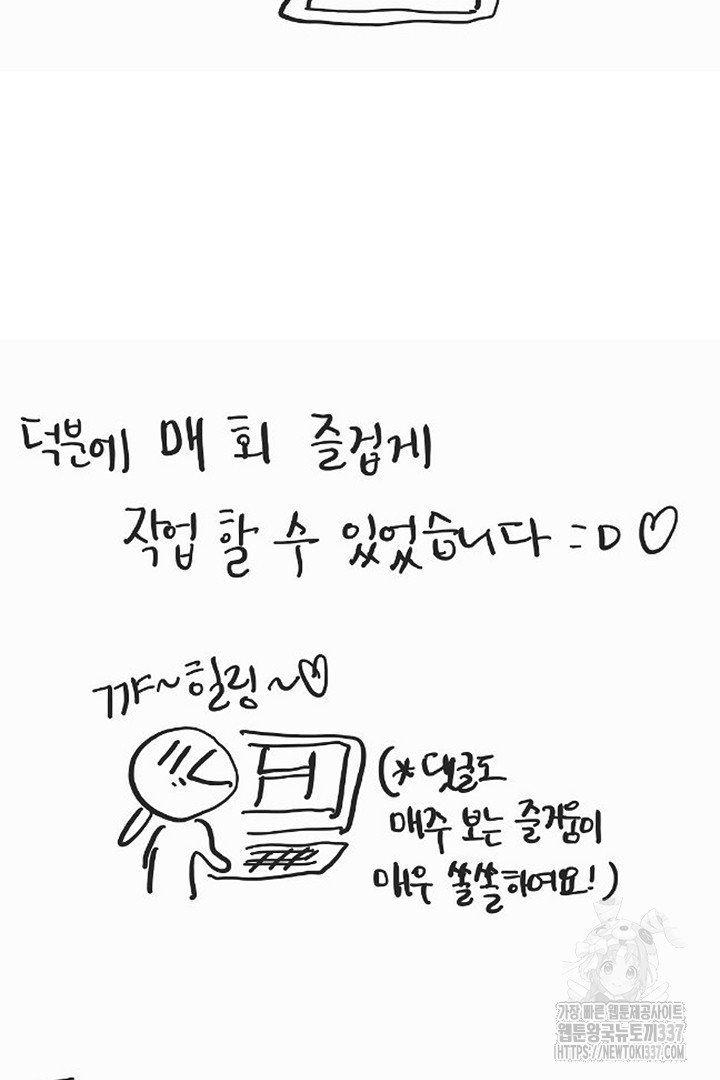 덕분에 매 회 즐겁게
작업 할 수 있었습니다 :D ♡
꺄~힐링~♡
(*댓글도
매주 보는 즐거움이
매우 쏠쏠하여요!)
가장 빠른 웹툰제공사이트
웹툰왕국뉴토끼337
HTTPS://NEWTOKI337.COM